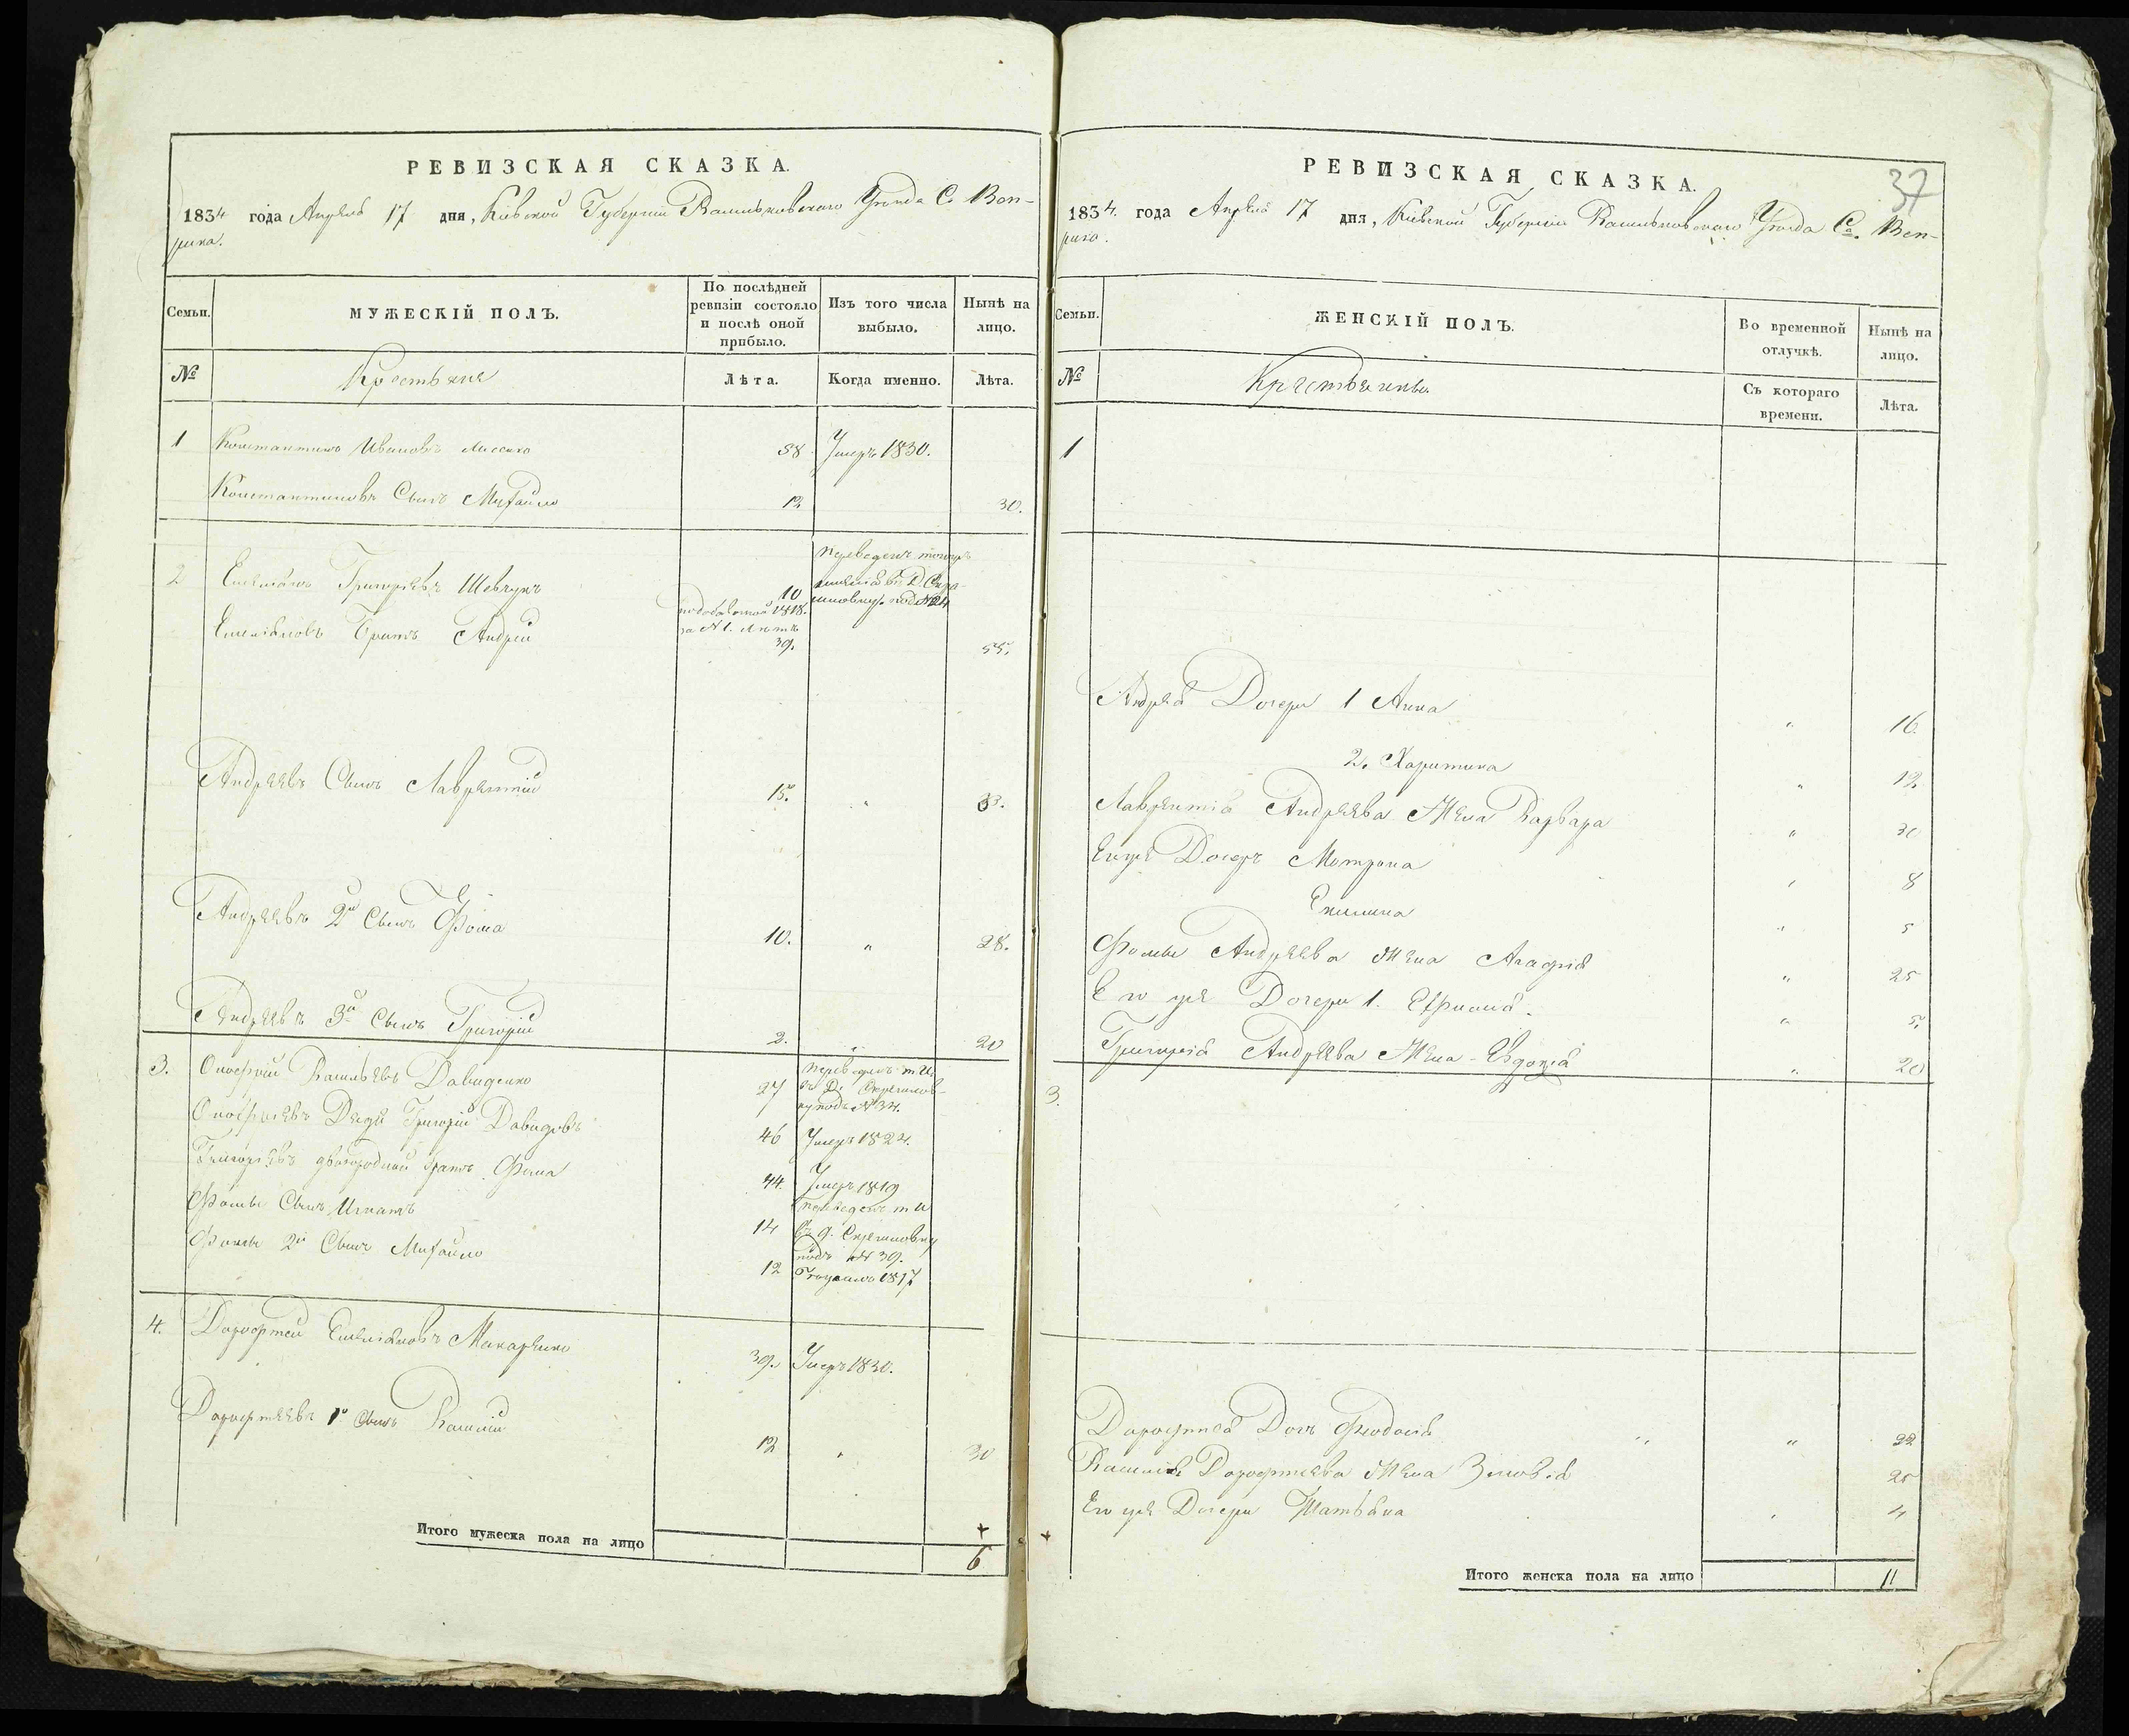 РЕВИЗСКАЯ СКАЗКА.
1834 года Апреля 17 дня, Кіевской Губерніи Васильковскаго Уезда С. Веп-
рика.
Семьи.
МУЖЕСКІЙ ПОЛЪ.
По послѣдней ревизіи состояло и послѣ оной прибыло.
Изъ того числа выбыло.
Нынѣ на лицо.
№
Крестьяне
Лѣта.
Когда именно.
Лѣта.
1 Константинъ Ивановъ 58 Умеръ 1830.
Константиновъ Сынъ Михайло 12 30.
2 Емельянъ Григорьевъ Шевчукъ 10 переведенъ
подъ № 24
Емельяновъ Братъ Андрей 39. 55.
1818.
Андреевъ Сынъ Лаврентій 15. " 33.
Андреевъ 2й Сынъ Фома 10. " 28.
Андреевъ 3й Сынъ Григорій 2. " 20
3. Онофрій Васильевъ Давиденко 27 переведенъ т. и.
въ Д.
подъ № 34.
Онофріевъ Дядя Григорій Давидовъ 46 Умеръ 1824.
Григорьевъ двоюродной братъ Фома 44. Умеръ 1819
Фомы Сынъ Игнатъ 14 переведенъ т и
въ д. Скрегиловку
подъ № 39.
Фомы 2й Сынъ Михайло 12 1817
4. Дорофтей Емельяновъ Макаренко 39. Умеръ 1830.
Дорофтеевъ 1й Сынъ Василій 12 " 30
Итого мужеска пола на лицо
6
РЕВИЗСКАЯ СКАЗКА.
37
1834. года Апреля 17 дня, Кіевской Губерніи Васильковскаго Уезда Са. Веп-
рика.
Семьи.
ЖЕНСКІЙ ПОЛЪ.
Во временной отлучкѣ.
Нынѣ на лицо.
№
Крестьянки
Съ котораго времени.
Лѣта.
1
Андрея Дочери 1 Анна " 16.
2. Харитина " 12.
Лаврентія Андреева Жена Варвара " 30
Его же Дочерь Мотрона " 8
Екилина " 5
Фомы Андреева Жена Агафія " 25
Его же Дочери 1. " 5.
Григорія Андреева Жена Евдокія " 20
3.
Дорофтея Дочь Феодосія " 22
Василія Дорофтеева Жена Зиновія 25
Его же Дочери Татьяна " 4
Итого женска пола на лицо
11